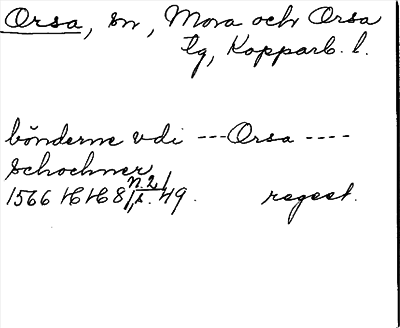 Orsa, sn, Mora och Orsa
tg, Kopparb. l.
bönderne vdi --- Orsa ----
Schochner
n. 2
1566 HH 8 1, s. 49. regest.